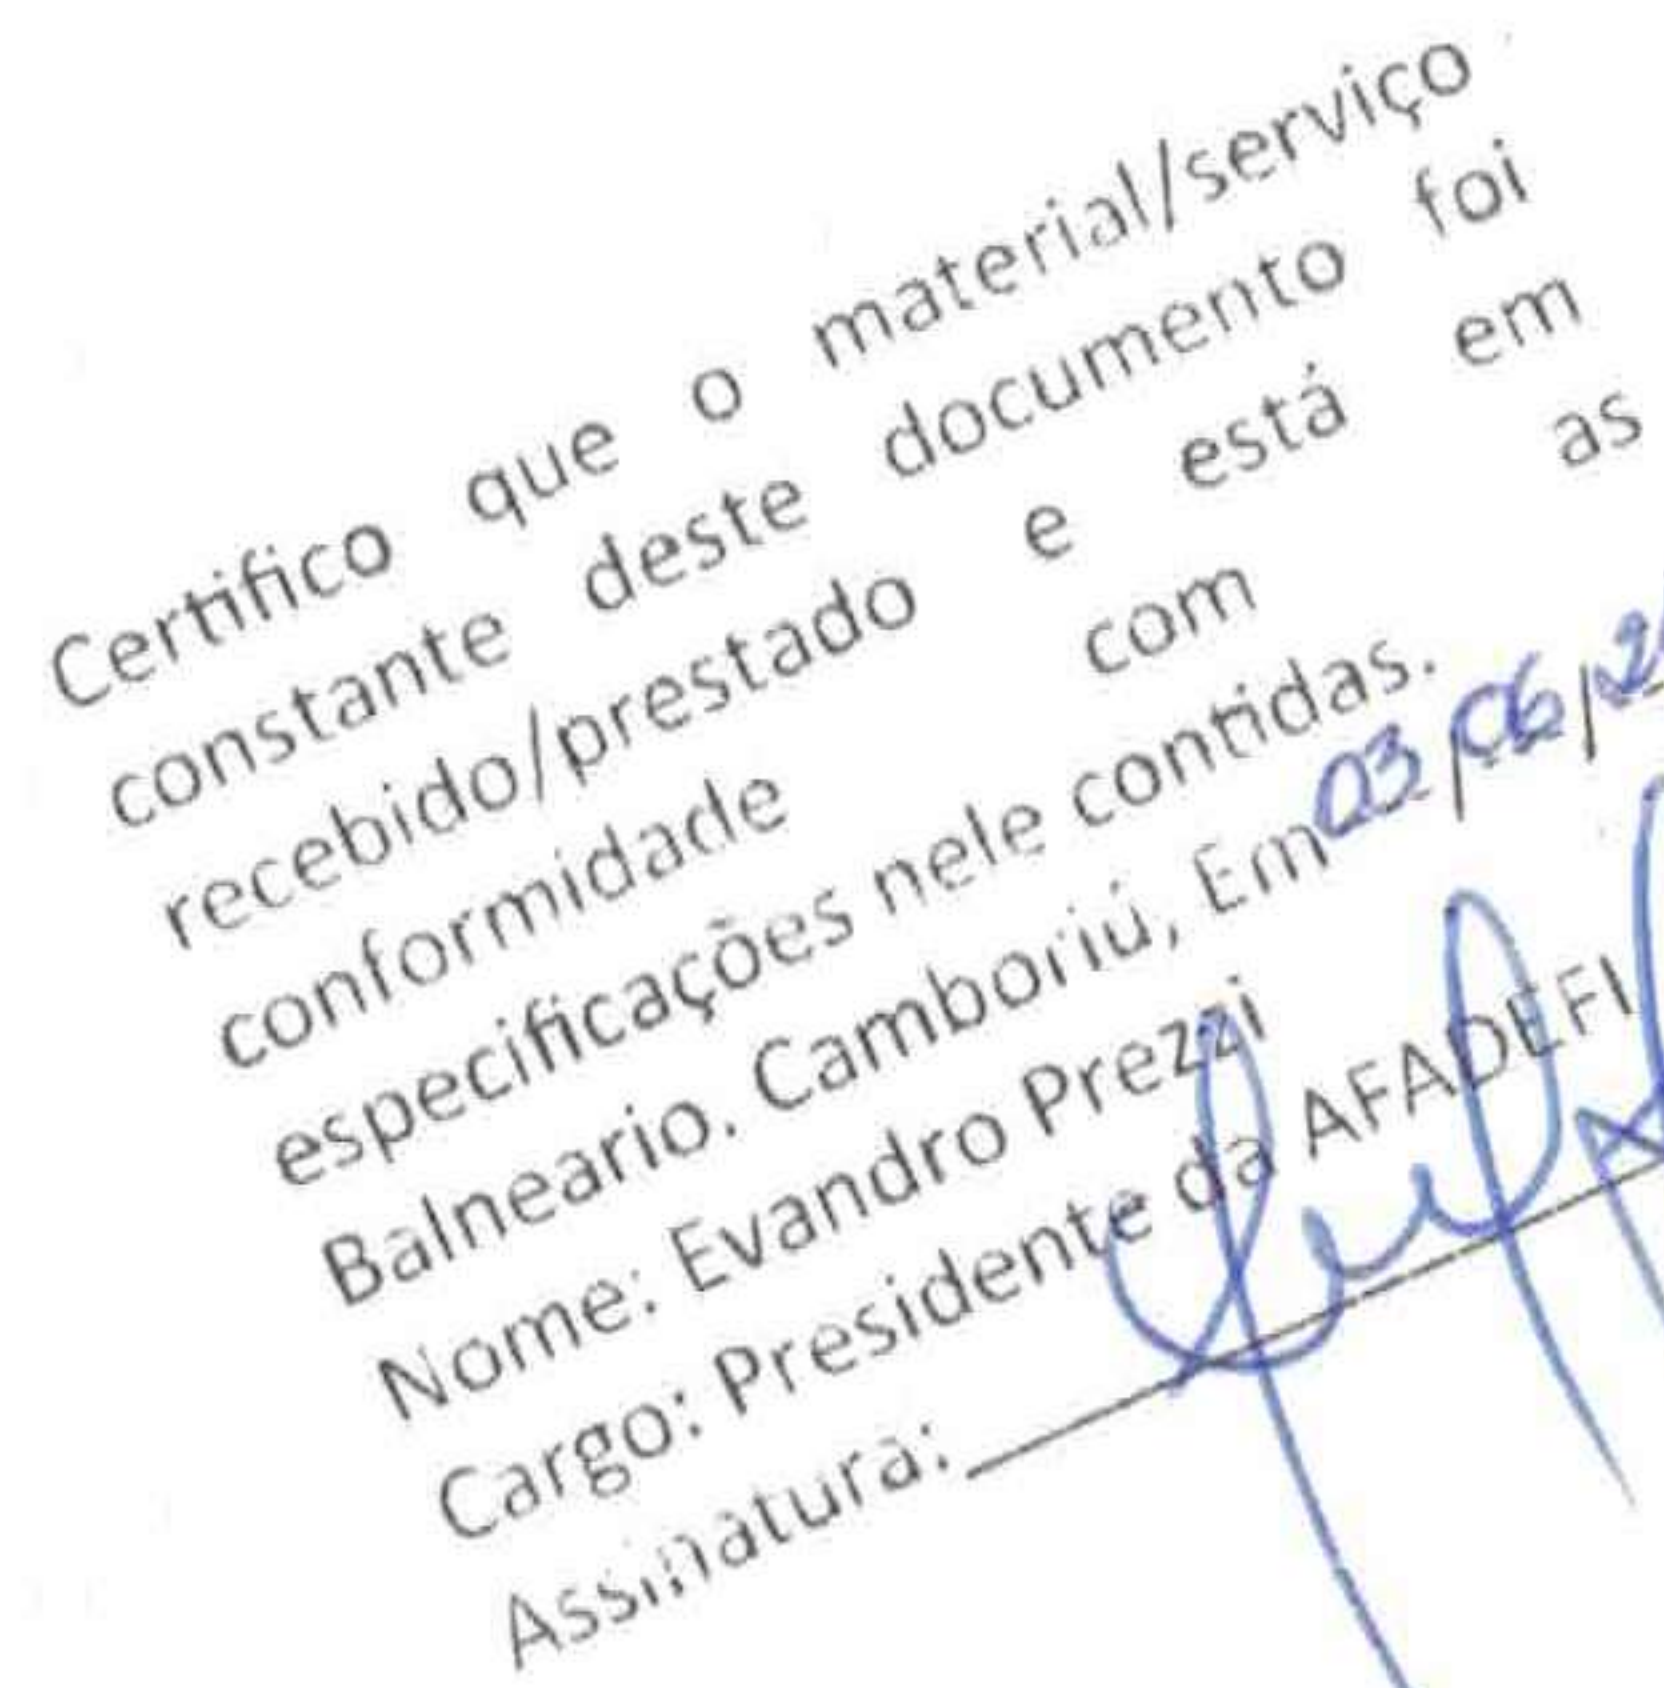 Certifico que o material/serviço
constante deste documento foi
recebido/prestado e está em
conformidade com as
especificações nele contidas.
Balneario. Camboriú, Em 03/06/2
Nome: Evandro Prezzi
Cargo: Presidente da AFADEFI
Assinatura: